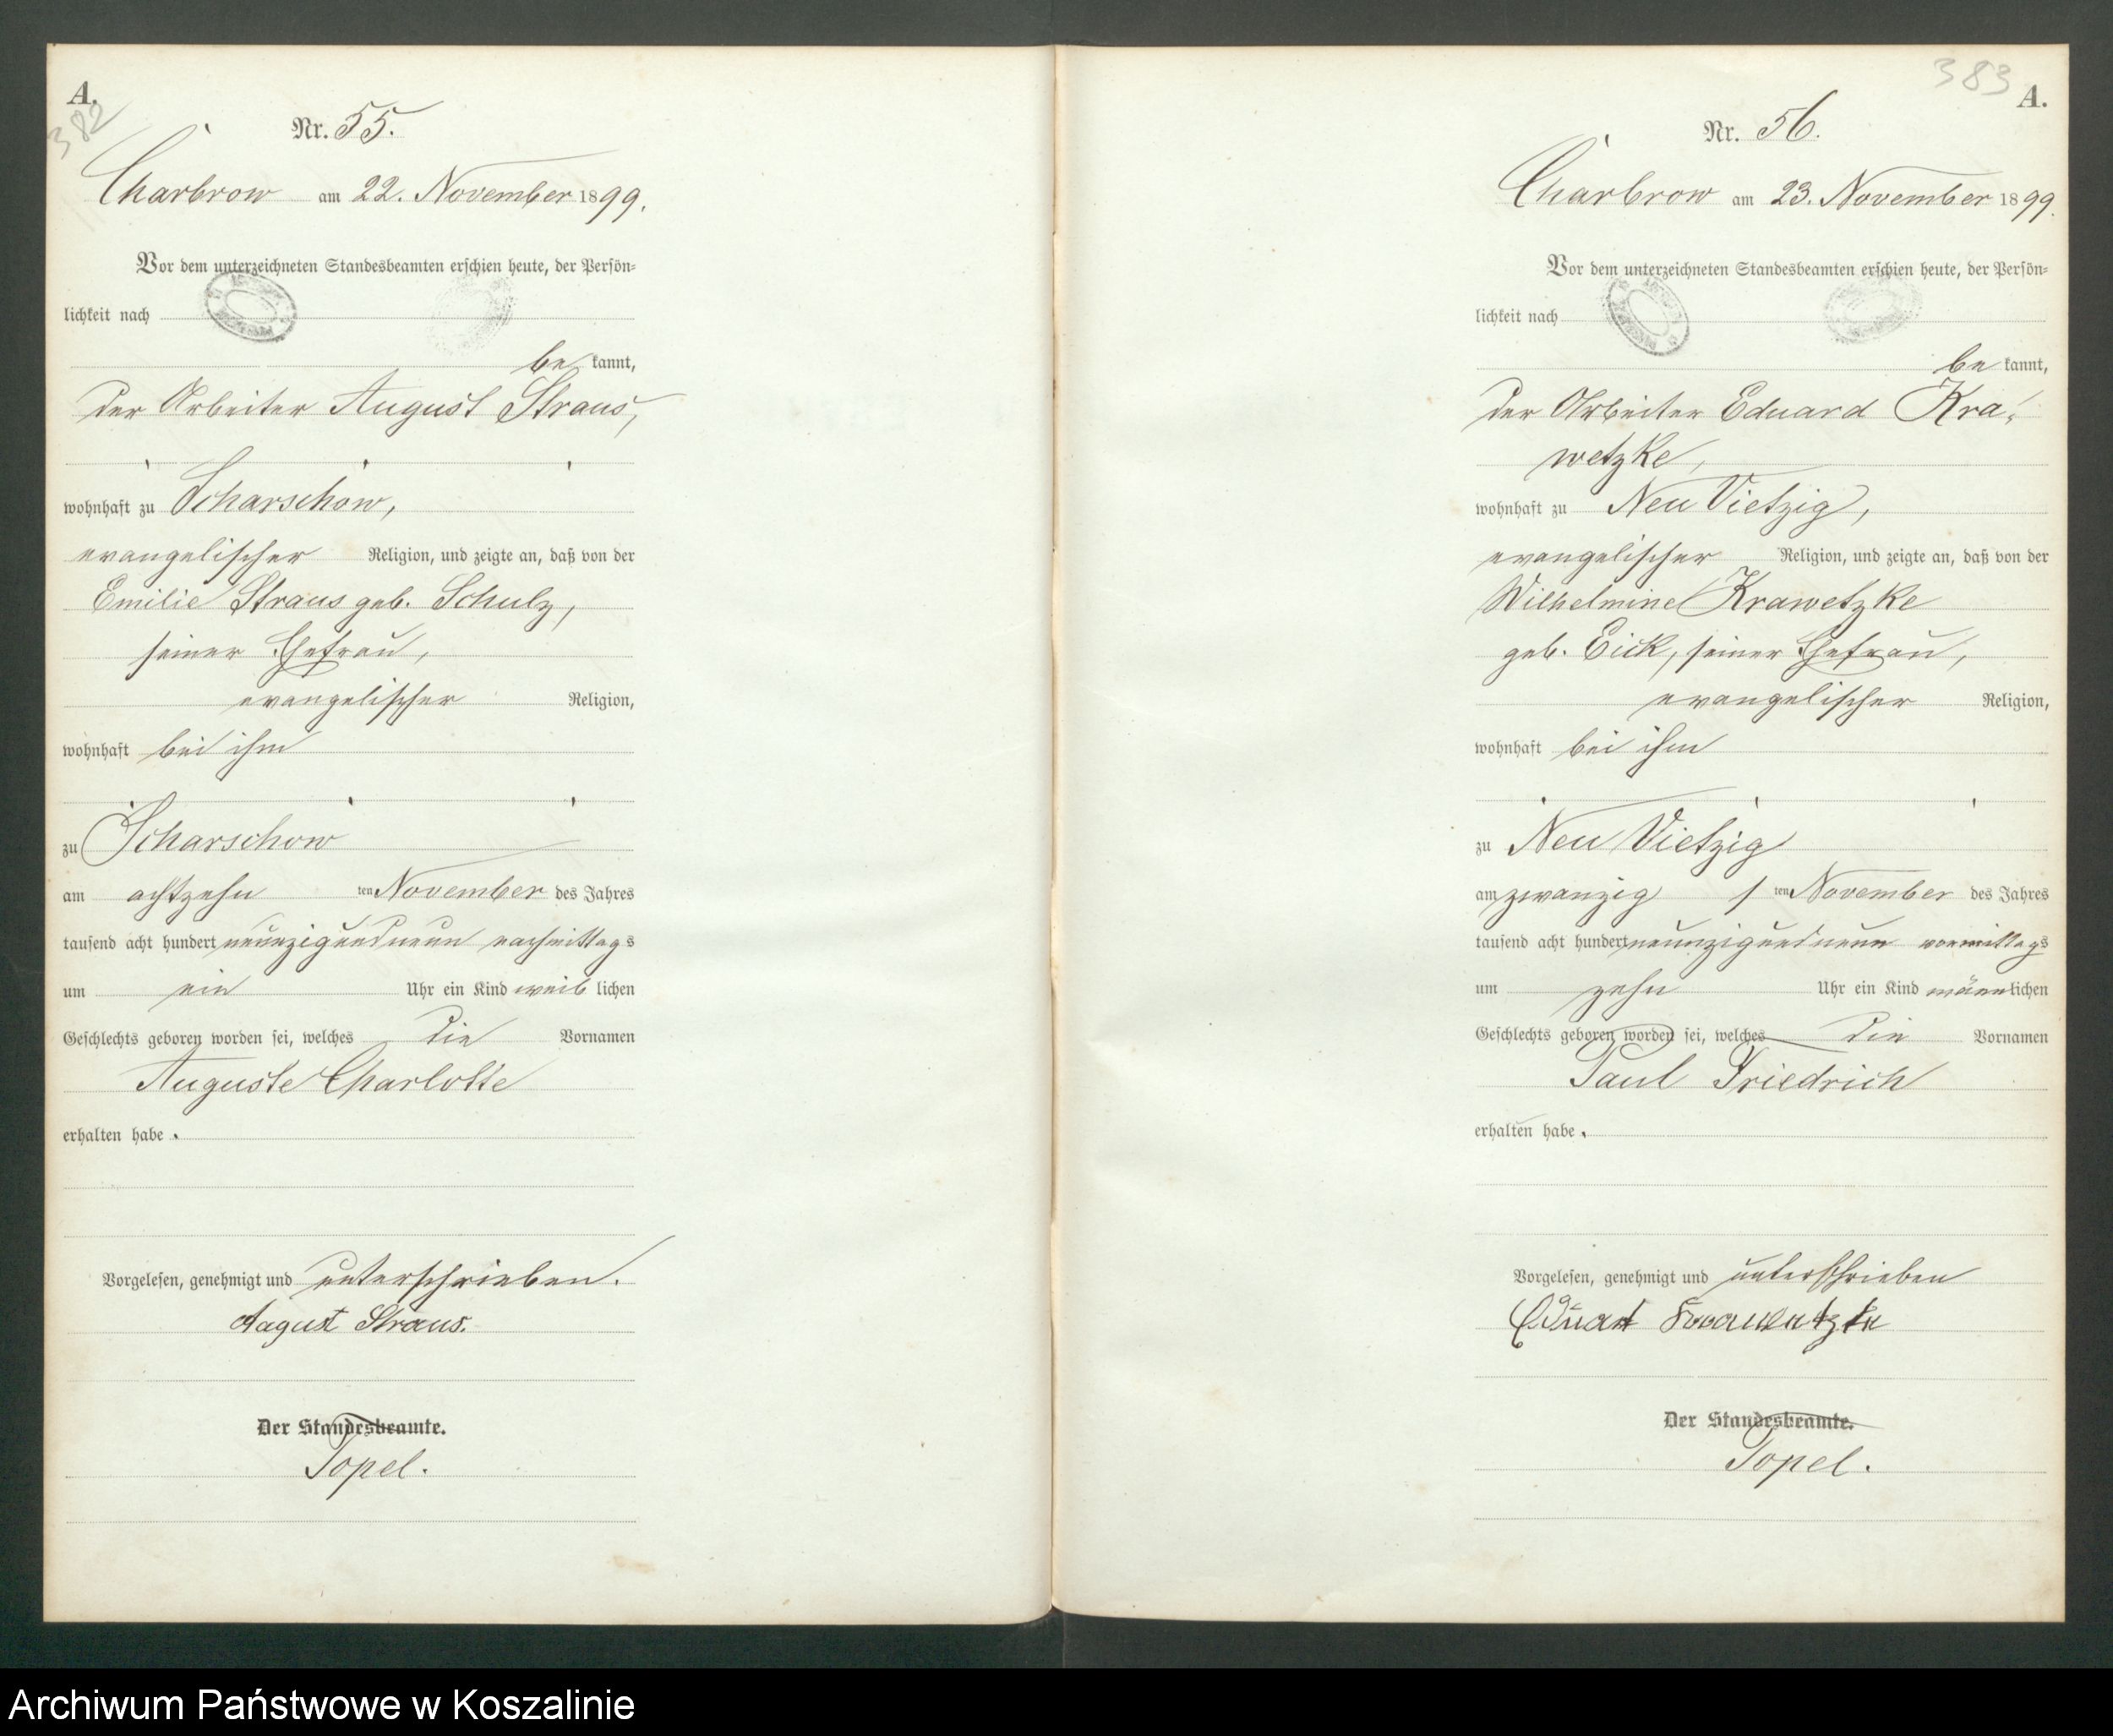 A.
382
Nr. 55.
Charbrow am 22. November 1899.
Vor dem unterzeichneten Standesbeamten erschien heute, der Persön-
lichkeit nach
be kannt,
der Arbeiter August Straus,
wohnhaft zu Scharschow,
evangelischer Religion, und zeigte an, daß von der
Emilie Straus geb. Schulz,
seiner Ehefrau,
evangelischer Religion,
wohnhaft bei ihm
zu Scharschow
am achtzehn ten November des Jahres
tausend acht hundert neunzigundneun nachmittags
um ein Uhr ein Kind weib lichen
Geschlechts geboren worden sei, welches die Vornamen
Auguste Charlotte
erhalten habe.
Vorgelesen, genehmigt und unterschrieben.
August Straus.
Der Standesbeamte.
Topel.
383
A.
Nr. 56.
Charbrow am 23. November 1899.
Vor dem unterzeichneten Standesbeamten erschien heute, der Persön-
lichkeit nach
be kannt,
der Arbeiter Eduard Kra-
wetzke,
wohnhaft zu Neu Vietzig,
evangelischer Religion, und zeigte an, daß von der
Wilhelmine Krawetzke
geb. Eick, seiner Ehefrau,
evangelischer Religion,
wohnhaft bei ihm
zu Neu Vietzig
am zwanzig s ten November des Jahres
tausend acht hundert neunzigundneun vormittags
um zehn Uhr ein Kind männ lichen
Geschlechts geboren worden sei, welches die Vornamen
Paul Friedrich
erhalten habe.
Vorgelesen, genehmigt und unterschrieben
Eduart Krawetzke
Der Standesbeamte.
Topel.
Archiwum Państwowe w Koszalinie